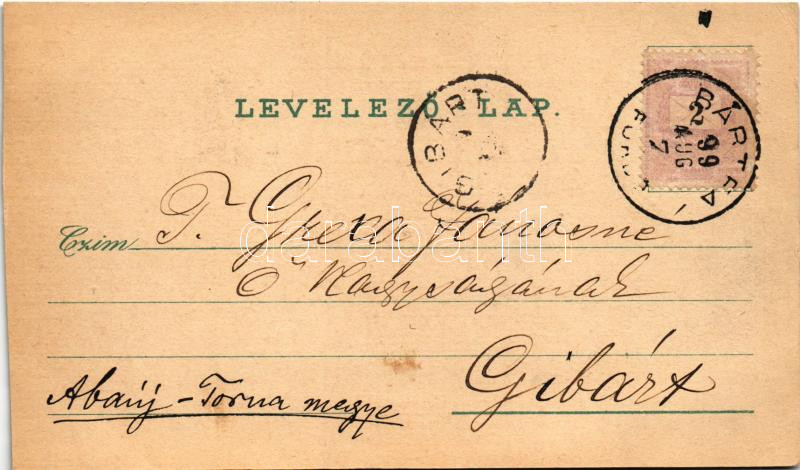 LEVELEZŐ LAP.
GIBÁRT
BÁRTFA
99
AUG
7
Czim T. Grexa Jánosné
Ő Nagyságának
Gibárt
Abaúj-Torna megye
darabanth